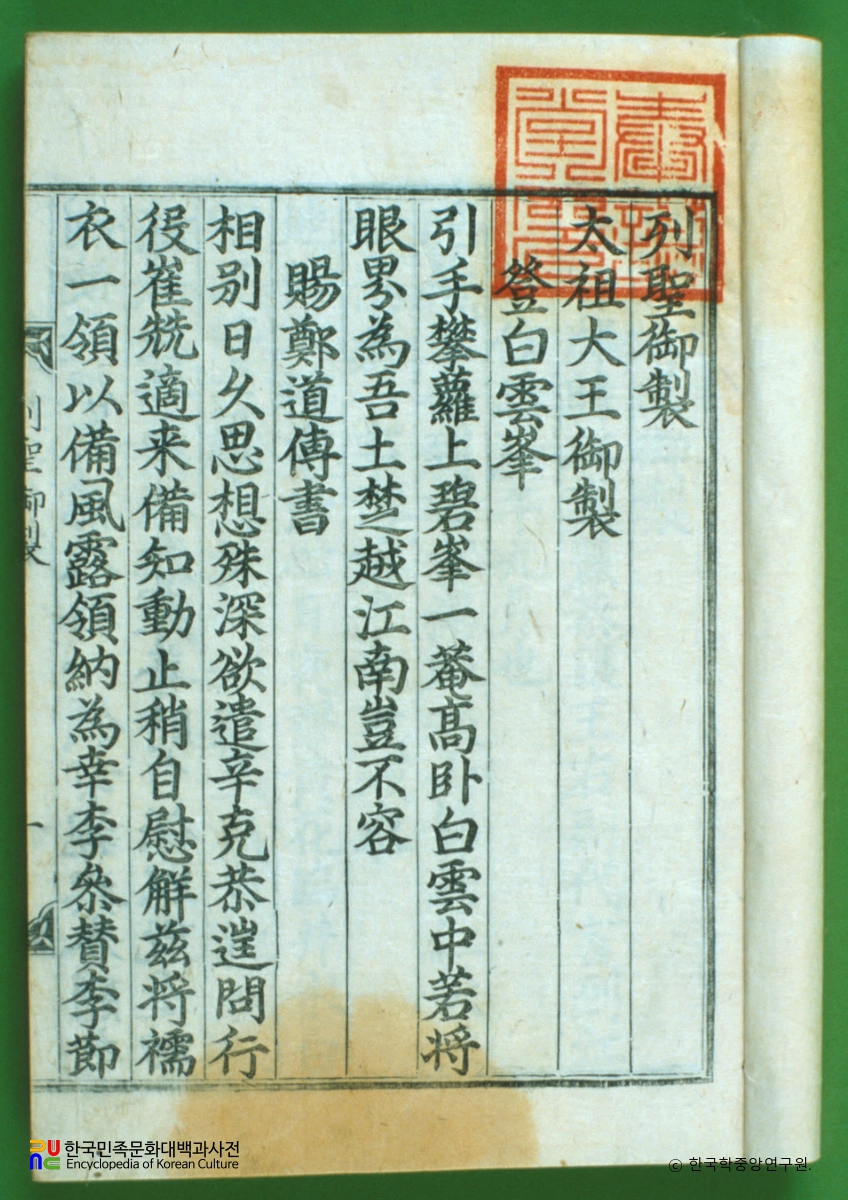 列聖御製
太祖大王御製
登白雲峯
引手攀蘿上碧峯一菴高卧白雲中若将
眼界為吾土楚越江南豈不容
賜鄭道傳書
相別日久思想殊深欲遣辛克恭遑問行
役崔兢適来備知動止稍自慰解茲将襦
衣一領以備風露領納為幸李叅賛李節
列聖御製
一
한국민족문화대백과사전
Encyclopedia of Korean Culture
© 한국학중앙연구원.